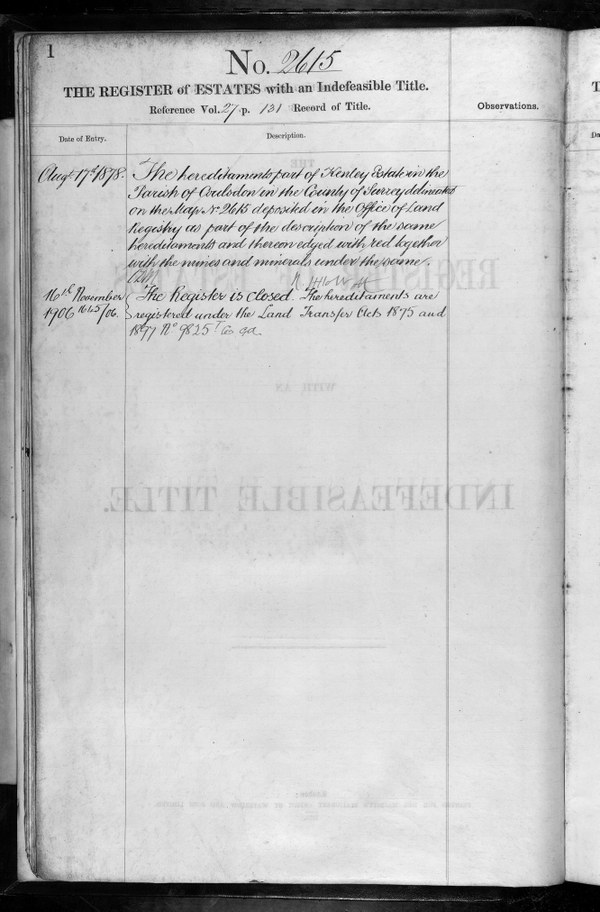 1
No. 2615
THE REGISTER of ESTATES with an Indefeasible Title.
Reference Vol. 27 p. 131 Record of Title.
Observations.
Date of Entry.
Description.
Augt 17th 1878.
The hereditaments part of Kenley Estate in the
Parish of Coulsdon in the County of Surrey delineated
on the Map No 2615 deposited in the Office of Land
Registry as part of the description of the same
hereditaments and thereon edged with red together
with the mines and minerals under the same.
16th November
1906 1645/06.
The Register is closed. The hereditaments are
registered under the Land Transfer Acts 1875 and
1897 No 9825
REGISTER
WITH AN
INDEFEASIBLE TITLE.